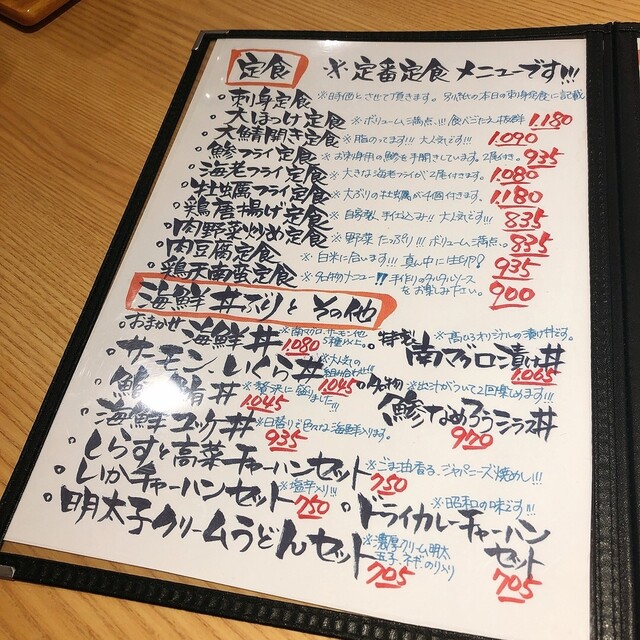 定食 ※定番定食 メニューです!!!
○刺身定食 ※時価とさせて頂きます。別紙の本日の刺身定食に記載
○大ほっけ定食 ※ボリューム満点!!! 食べごたえ抜群 1.180
○大鯖開き定食 ※脂のってます!!! 大人気です!!! 1.090
○鯵フライ定食 ※お刺身用の鯵を手開きしています。2尾付き。 935
○海老フライ定食 ※大きな海老フライが2尾付きます。 1.080
○牡蠣フライ定食 ※大ぶりの牡蠣が4個付きます。 1.180
○鶏唐揚げ定食 ※自家製、手仕込み!! 大人気です!!! 835
○肉野菜炒め定食 ※野菜たっぷり!!! ボリューム満点。 835
○肉豆腐定食 ※白米に合います!!! 真ん中に生卵! 935
○鶏天南蛮定食 ※名物メニュー!! 手作りのタルタルソースをお楽しみ下さい。 900
海鮮丼ぶりとその他
○おまかせ海鮮丼 ※南マグロ、サーモン他5種以上。 1.080
○特製南マグロ漬け丼 ※高ロオリジナルの漬け丼です。 1.065
○サーモン、いくら丼 ※大人気の組み合わせ!! 1.045
○鮪、鮪丼 ※贅沢に盛りました!!! 1.045
○名物鯵なめろうシラス丼 ※出汁がついて2回楽しめます!!! 970
○海鮮ユッケ丼 ※日替りで色々な海鮮入ります。 935
○しらすと高菜チャーハンセット ※ごま油香る、ジャパニーズ焼めし!!! 750
○いかチャーハンセット ※塩辛入り!!! 750
○ドライカレーチャーハンセット ※昭和の味です!!! 705
○明太子クリームうどんセット ※濃厚クリーム明太、玉子、ネギ、のり入り 705